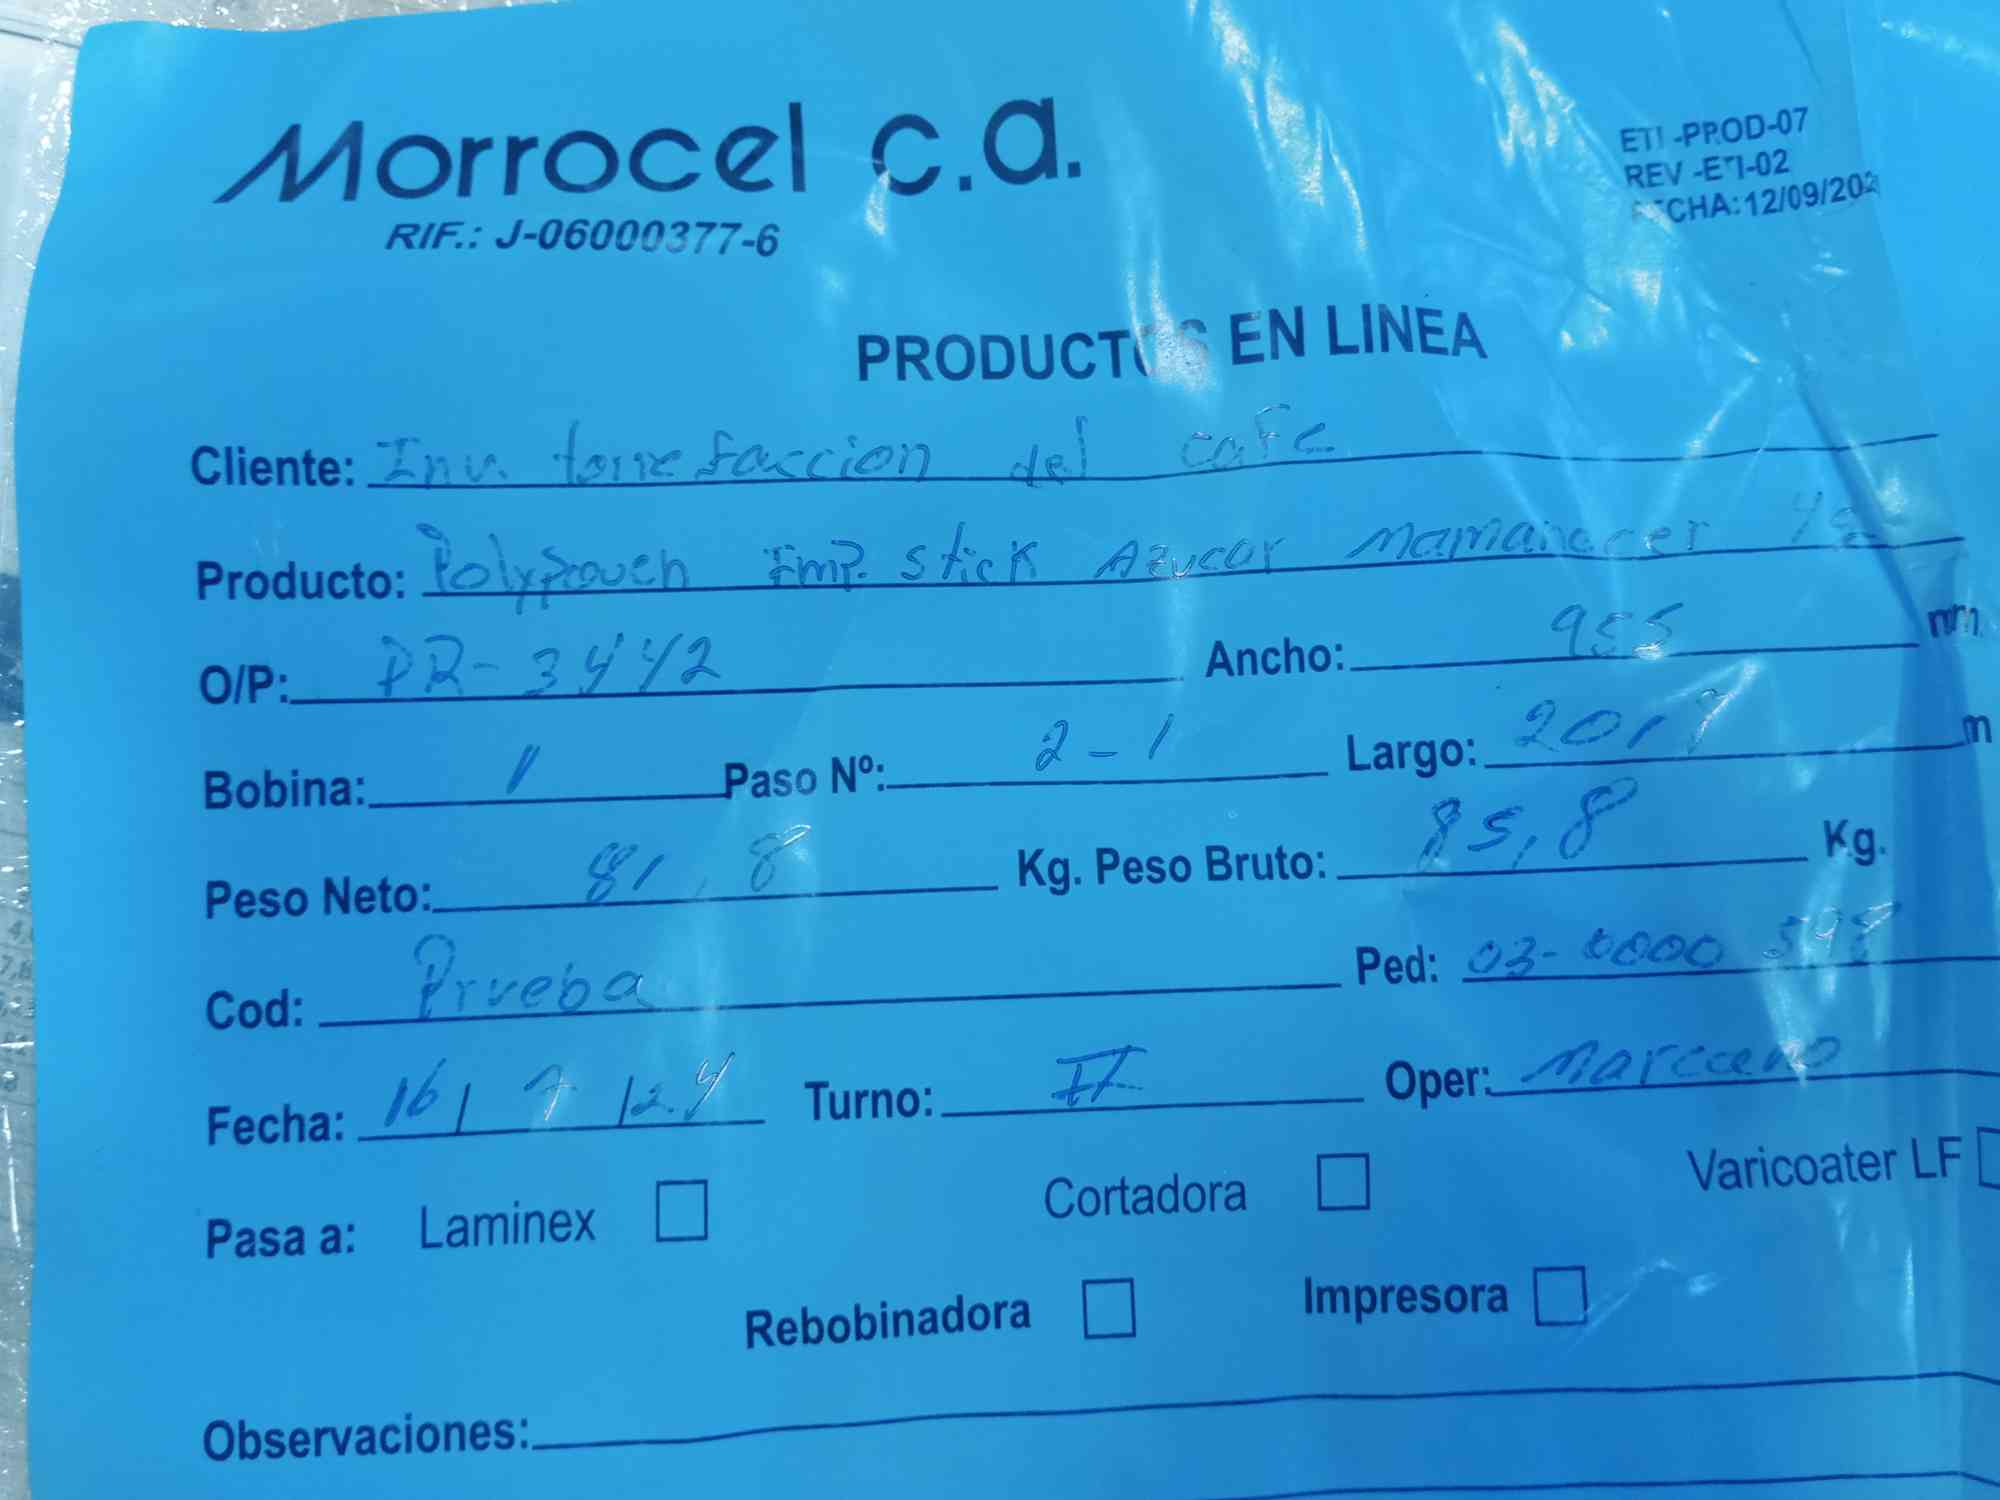 Morrocel c.a.
RIF.: J-06000377-6
ETI -PROD-07
REV -ETI-02
FECHA: 12/09/202
PRODUCTOS EN LINEA
Cliente: Inv. torrefaccion del cafe
Producto: Polypouch Imp. Stick Azucar Mamanecer
O/P: PR-3442 Ancho: 955 mm
Bobina: 1 Paso Nº: 2-1 Largo: 2017 m
Peso Neto: 81,8 Kg. Peso Bruto: 85,8 Kg.
Cod: Prueba Ped: 03-0000 598
Fecha: 16/7/24 Turno: II Oper: Marccano
Pasa a: Laminex Cortadora Varicoater LF
Rebobinadora Impresora
Observaciones: